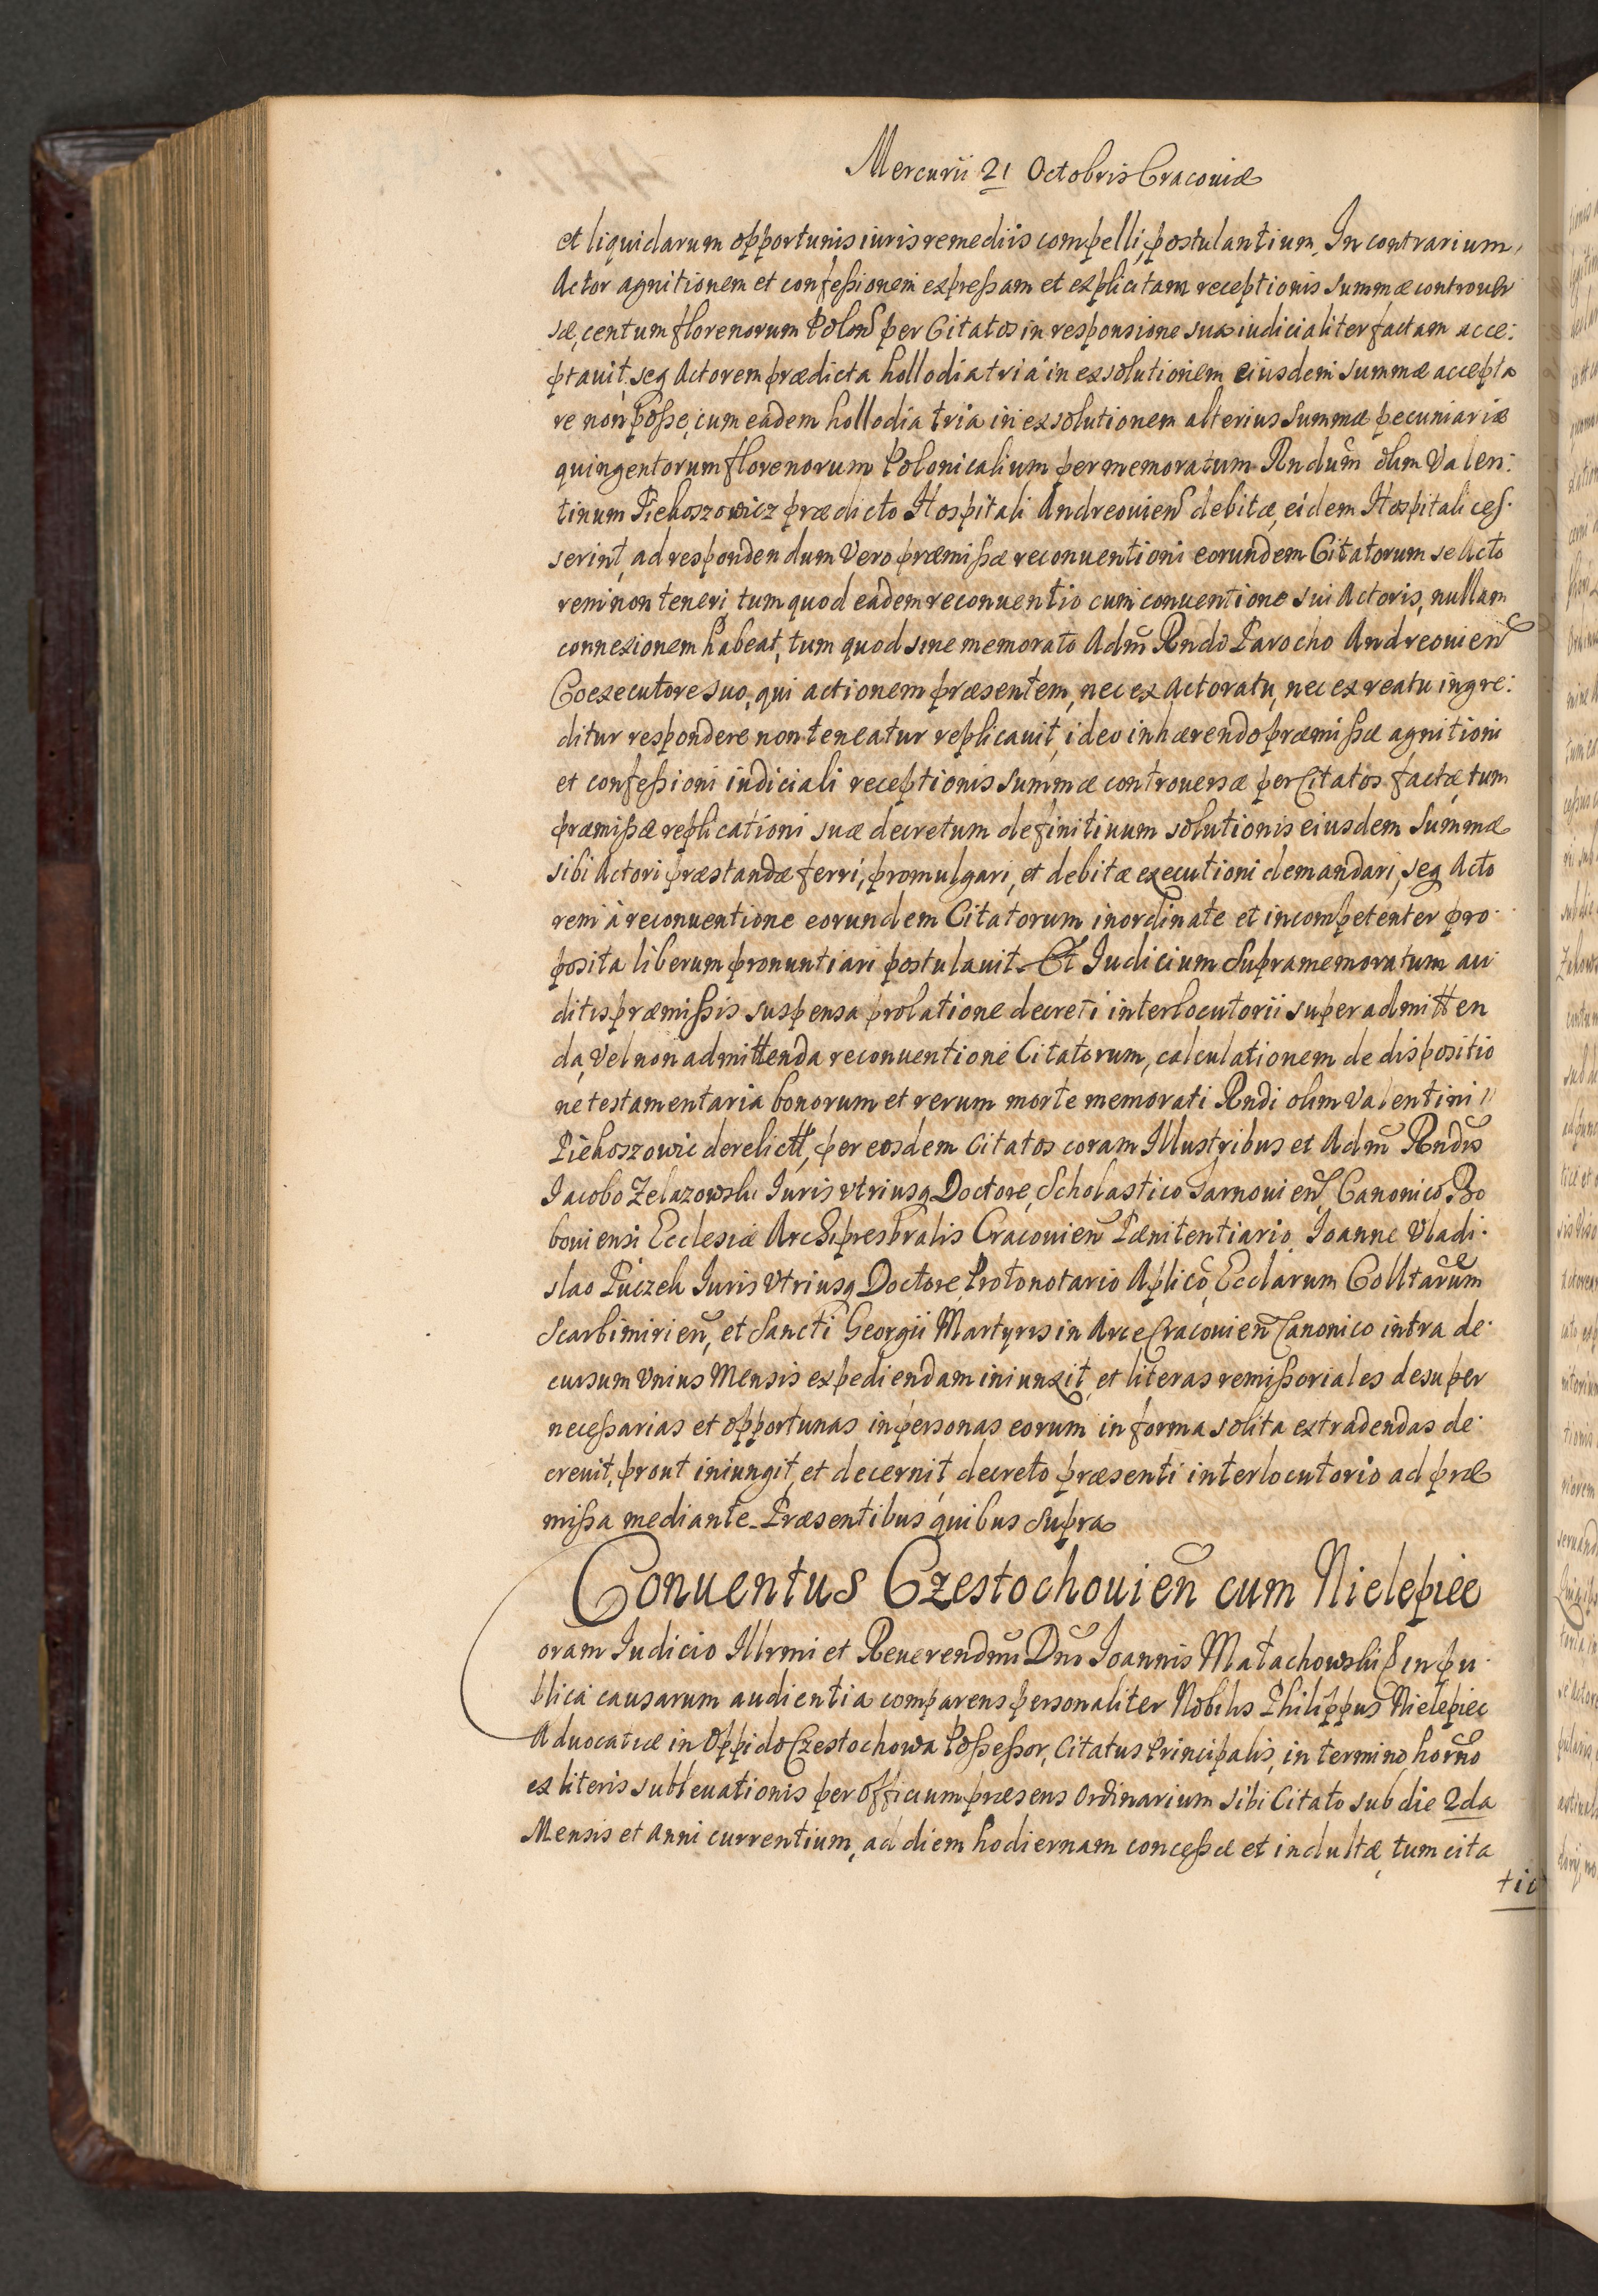 Mercurii 21 Octobris Cracouiæ
et liquidarum opportunis iuris remediis compelli, postulantium. In contrarium,
Actor agnitionem et confeßionem expreßam et explicitam receptionis summæ controuer
sæ, centum florenorum Polon̄ per Citatos in responsione sua iudicialiter factam acce:
ptauit, seq Actorem prædicta hollodia tria in exsolutionem eiusdem summæ accepta
re non poße, cum eadem hollodia tria in exsolutionem alterius summæ pecuniariæ
quingentorum florenorum Polonicalium per memoratum Rndum olim Valen:
tinum Piekoszowicz prædicto Hospitali Andreouien̄ debitæ, eidem Hospitali ces-
serint, ad respondendum Vero præmißæ reconuentioni eorundem Citatorum se Acto
rem non teneri, tum quod eadem reconuentio cum conuentione sui Actoris, nullam
connexionem habeat, tum quod sine memorato Adm̄ Rndo Parocho Andreouien̄
Coexecutore suo, qui actionem præsentem, nec ex Actoratu, nec ex reatu ingre:
ditur respondere non teneatur replicauit, ideo inhærendo præmißæ agnitioni
et confeßioni iudiciali receptionis summæ controuersæ per Citatos factæ, tum
præmißæ replicationi suæ decretum definitiuum solutionis eiusdem Summæ
sibi Actori præstandæ ferri, promulgari, et debitæ executioni demandari, seq Acto
rem à reconuentione eorundem Citatorum inordinate et incompetenter pro-
posita liberum pronuntiari postulauit. Et Iudicium Supramemoratum au-
ditis præmißis suspensa prolatione decreti interlocutorii super admitten
da, Vel non admittenda reconuentione Citatorum, calculationem de dispositio
ne testamentaria bonorum et rerum morte memorati Rndi olim Valentini
Piekoszowic derelictt, per eosdem Citatos coram Illustribus et Adm̄ Rndis
Iacobo Zelazowski Iuris vtriusq Doctore, Scholastico Tarnouien̄, Canonico Bo
bouiensi Ecclesiæ Archipresbralis Cracouien̄ Pænitentiario, Ioanne Vladi-
slao Puczek Iuris Vtriusq Doctore Protonotario Aplico, Ecclarum Colltarum
Scarbimirien̄, et Sancti Georgii Martyris in Arce Cracouien̄ Canonico intra de-
cursum Vnius Mensis expediendam iniunxit, et literas remißoriales desuper
neceßarias et opportunas in personas eorum in forma solita extradendas de-
creuit, prout iniungit, et decernit, decreto præsenti interlocutorio ad præ
mißa mediante. Præsentibus quibus Supra
Conuentus Czestochouien̄ cum Nielepiec
oram Iudicio Illrmi et Reuerendmi Dni Ioannis Małachowski in pu-
blica causarum audientia comparens personaliter Nobilis Philippus Nielepiec
Aduocatiæ in Oppido Czestochowa Poßeßor, Citatus Principalis, in termino horno
ex literis subleuationis per Officium præsens Ordinarium sibi Citato sub die 2da
Mensis et Anni currentium, ad diem hodiernam conceßæ et indultæ, tum cita
tio